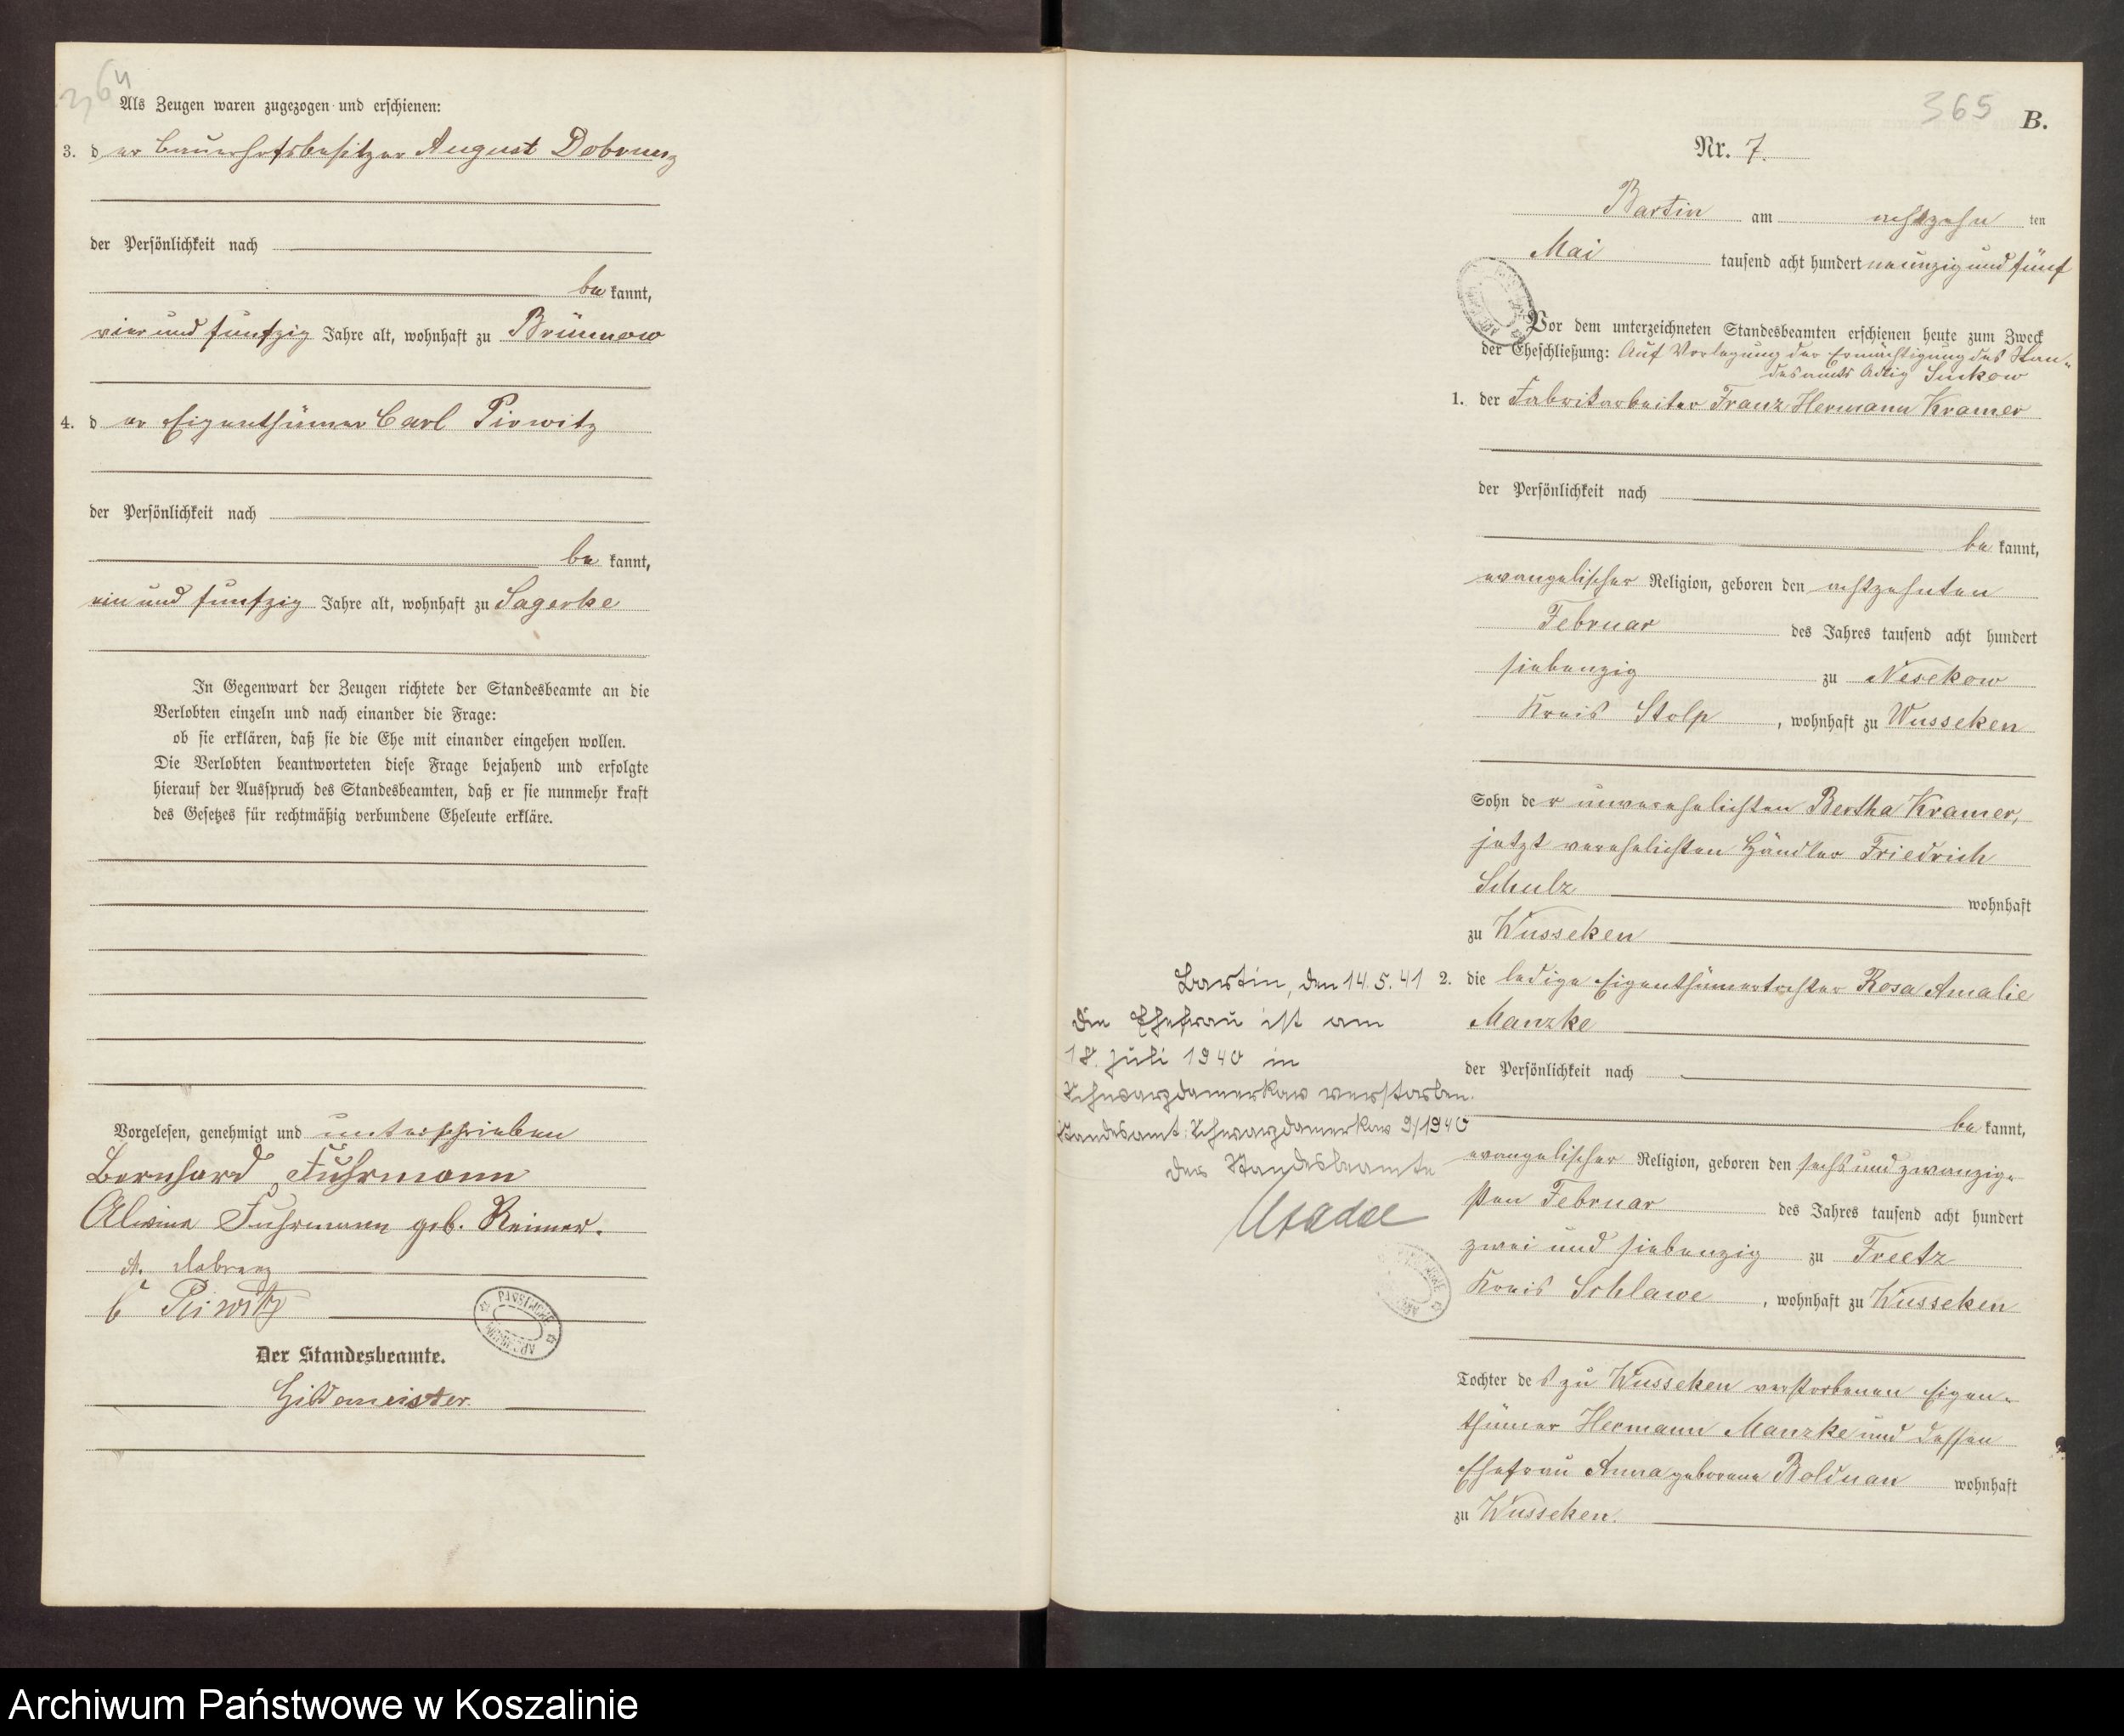 364
Als Zeugen waren zugezogen und erschienen:
3. der Bauerhofsbesitzer August Dobrunz
der Persönlichkeit nach
bekannt,
vier und fünfzig Jahre alt, wohnhaft zu Brünnow
4. der Eigenthümer Carl Pirwitz
der Persönlichkeit nach
bekannt,
ein und fünfzig Jahre alt, wohnhaft zu Sagerke
In Gegenwart der Zeugen richtete der Standesbeamte an die
Verlobten einzeln und nach einander die Frage:
ob sie erklären, daß sie die Ehe mit einander eingehen wollen.
Die Verlobten beantworteten diese Frage bejahend und erfolgte
hierauf der Ausspruch des Standesbeamten, daß er sie nunmehr kraft
des Gesetzes für rechtmäßig verbundene Eheleute erkläre.
Vorgelesen, genehmigt und unterschrieben
Bernhard Fuhrmann
Alwine Fuhrmann geb. Reimer.
A. Dobrunz
C Pirwitz
Der Standesbeamte.
Gildemeister.
365
B.
Nr. 7.
Bartin am achtzehn ten
Mai tausend acht hundert neunzig und fünf
Vor dem unterzeichneten Standesbeamten erschienen heute zum Zweck
der Eheschließung: Auf Vorlegung der Ermächtigung des Stan-
desamts Adlig Suckow
1. der Fabrikarbeiter Franz Hermann Kramer
der Persönlichkeit nach
bekannt,
evangelischer Religion, geboren den achtzehnten
Februar des Jahres tausend acht hundert
siebenzig zu Nesekow
Kreis Stolp, wohnhaft zu Wusseken
Sohn der unverehelichten Bertha Kramer,
jetzt verehelichten Händler Friedrich
Schulz wohnhaft
zu Wusseken
2. die ledige Eigenthümertochter Rosa Amalie
Manzke
der Persönlichkeit nach
bekannt,
evangelischer Religion, geboren den sechs und zwanzig-
sten Februar des Jahres tausend acht hundert
zwei und siebenzig zu Freetz
Kreis Schlawe, wohnhaft zu Wusseken
Tochter des zu Wusseken verstorbenen Eigen-
thümer Hermann Manzke und dessen
Ehefrau Anna geborene Bolduan wohnhaft
zu Wusseken.
Bartin, den 14.5.41
Die Ehefrau ist am
18. Juli 1940 in
Schwarzdamerkow verstorben.
Standesamt: Schwarzdamerkow 9/1940
Der Standesbeamte
Archiwum Państwowe w Koszalinie